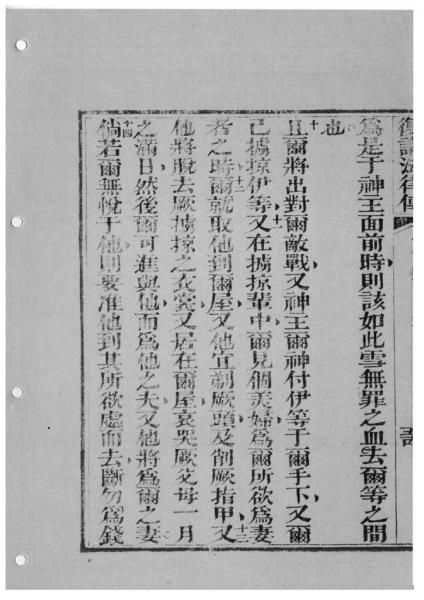 復講法律傳
為是于神王面前時則該如此雪無罪之血去爾等之間
也
十且爾將出對爾敵戰又神王爾神付伊等于爾手下又爾
已擄掠伊等十一又在擄掠輩中爾見個美婦為爾所欲為妻
者之時十二爾就取他到爾屋又他宜剃厥頭及削厥指甲十三又
他將脫去厥擄掠之衣裳又居在爾屋哀哭厥父母一月
之滿日然後爾可進與他而為他之夫又他將為爾之妻
十四倘若爾無悅于他則要准他到其所欲處而去斷勿為錢